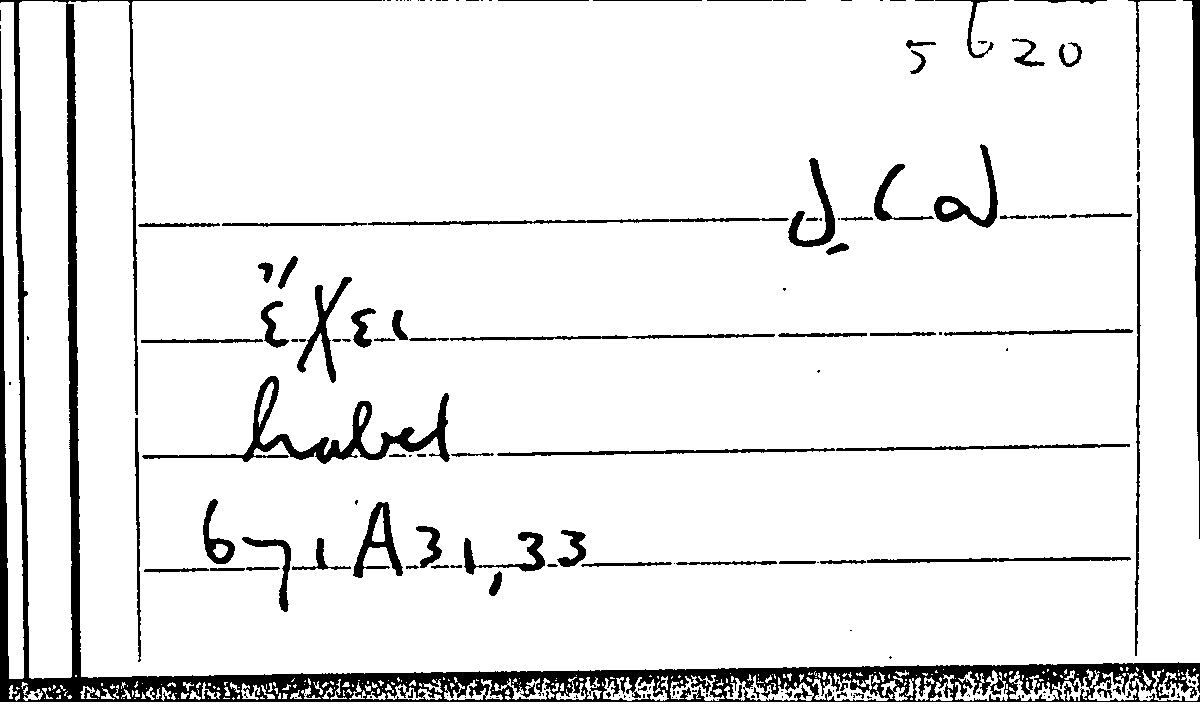 5620
ἔχει
habet
671 A 31, 33